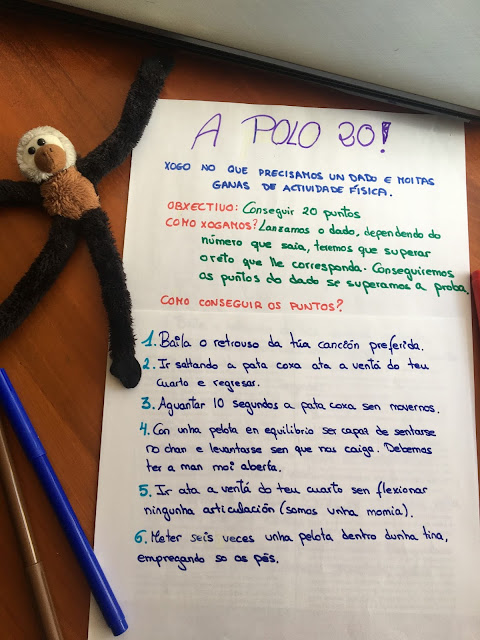 A POLO 20!
XOGO NO QUE PRECISAMOS UN DADO E MOITAS
GANAS DE ACTIVIDADE FÍSICA.
OBXECTIVO: Conseguir 20 puntos
COMO XOGAMOS? Lanzamos o dado, dependendo do
número que saia, teremos que superar
o reto que lle corresponda. Conseguiremos
os puntos do dado se superamos a proba.
COMO CONSEGUIR OS PUNTOS?
1. Baila o retrouso da túa canción preferida.
2. Ir saltando a pata coxa ata a ventá do teu
cuarto e regresar.
3. Aguantar 10 segundos a pata coxa sen movernos.
4. Con unha pelota en equilibrio ser capaz de sentarse
no chan e levantarse sen que nos caiga. Debemos
ter a man moi aberta.
5. Ir ata a ventá do teu cuarto sen flexionar
ningunha articulación (somos unha momia).
6. Meter seis veces unha pelota dentro dunha tina,
empregando so os pés.